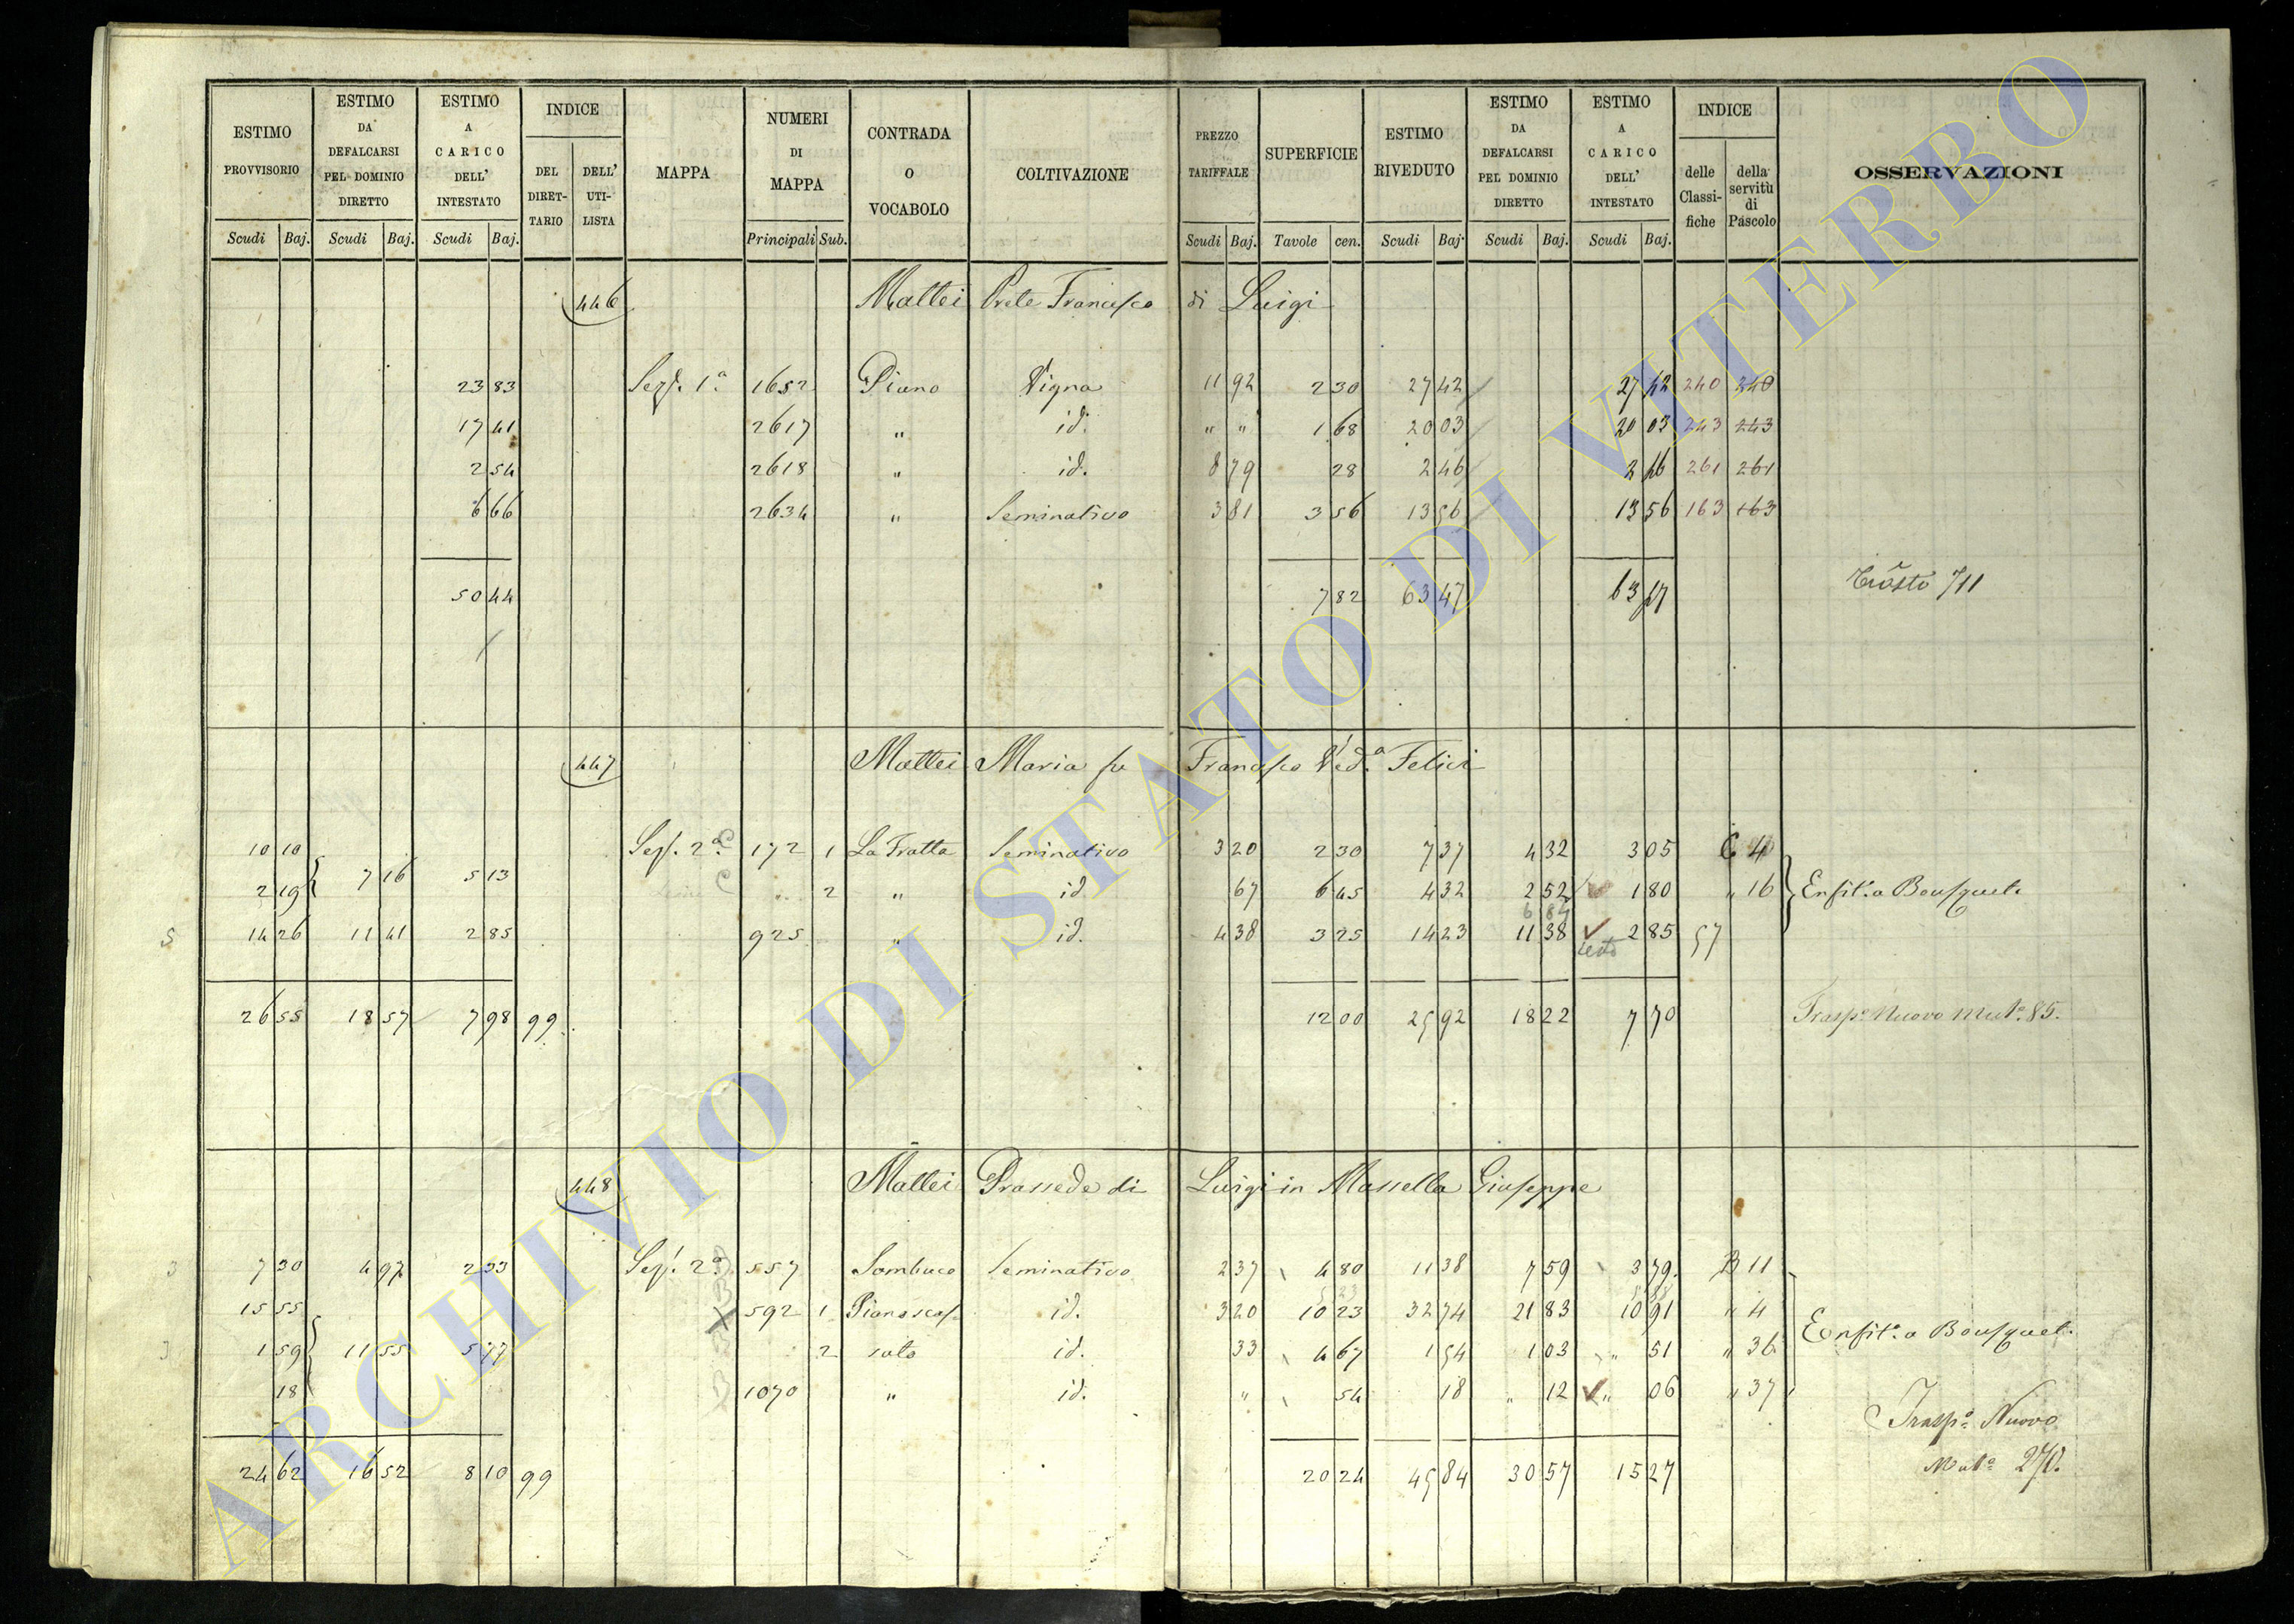 ESTIMO PROVVISORIO Scudi Baj. | ESTIMO DA DEFALCARSI PEL DOMINIO DIRETTO Scudi Baj. | ESTIMO A CARICO DELL' INTESTATO Scudi Baj. | INDICE DEL DIRETTARIO DELL' UTILISTA | MAPPA | NUMERI DI MAPPA Principali Sub. | CONTRADA O VOCABOLO | COLTIVAZIONE | PREZZO TARIFFALE Scudi Baj. | SUPERFICIE Tavole cen. | ESTIMO RIVEDUTO Scudi Baj. | ESTIMO DA DEFALCARSI PEL DOMINIO DIRETTO Scudi Baj. | ESTIMO A CARICO DELL' INTESTATO Scudi Baj. | INDICE delle Classifiche della servitù di Pascolo | OSSERVAZIONI
446 Mattei Prete Francesco di Luigi
23 83 Sez. 1a 1652 Piano Vigna 11 92 2 30 27 42 27 42 240 240
17 41 2617 " id. " " 1 68 20 03 20 03 243 243
2 54 2618 " id. 8 79 28 2 46 2 46 261 261
6 66 2634 " Seminativo 3 81 3 56 13 56 13 56 163 163
50 44 7 82 63 47 63 47 711
447 Mattei Maria fu Francesco Ved.a Felici
10 10 Sez. 2a C 172 1 La Fratta Seminativo 3 20 2 30 7 37 4 32 3 05 C 4
7 16 5 13
2 19 C 2 " id 67 6 45 4 32 2 52 1 80 " 16 Enfit.a Bousquet.
6 84
5 14 26 11 41 2 85 925 " id. 4 38 3 25 14 23 11 38 2 85 57
26 55 18 57 7 98 99 12 00 25 92 18 22 7 70 Trasp.o Nuovo Mut.a 85.
448 Mattei Prassede di Luigi in Massella Giuseppe
3 7 30 4 97 2 33 Sez. 2a B 557 Sambuco Seminativo 2 37 4 80 11 38 7 59 3 79 B 11
15 55 B 592 1 Pianoscas id. 3 20 10 23 32 74 21 83 10 91 " 4
3 1 59 11 55 5 77 B 2 sato id. 33 4 67 1 54 1 03 " 51 " 36 Enfit.a Bousquet.
18 B 1070 " id. " 54 18 " 12 " 06 " 37
Trasp.o Nuovo
24 62 16 52 8 10 99 20 24 45 84 30 57 15 27 Mut.a 270.
ARCHIVIO DI STATO DI VITERBO